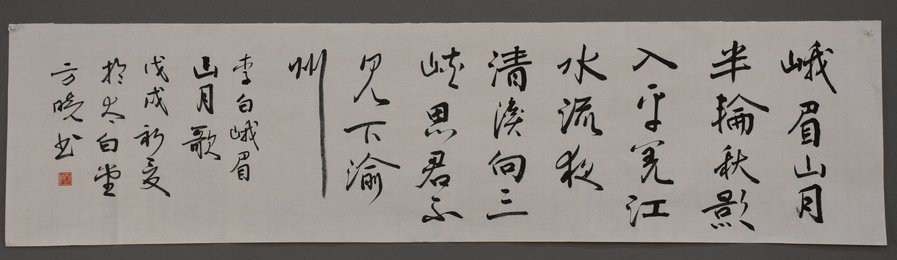 峨眉山月
半輪秋影
入平羌江
水流夜
清溪向三
峡思君不
见下渝
州
李白峨眉
山月歌
戊戌初夏
於太白堂
方晓书